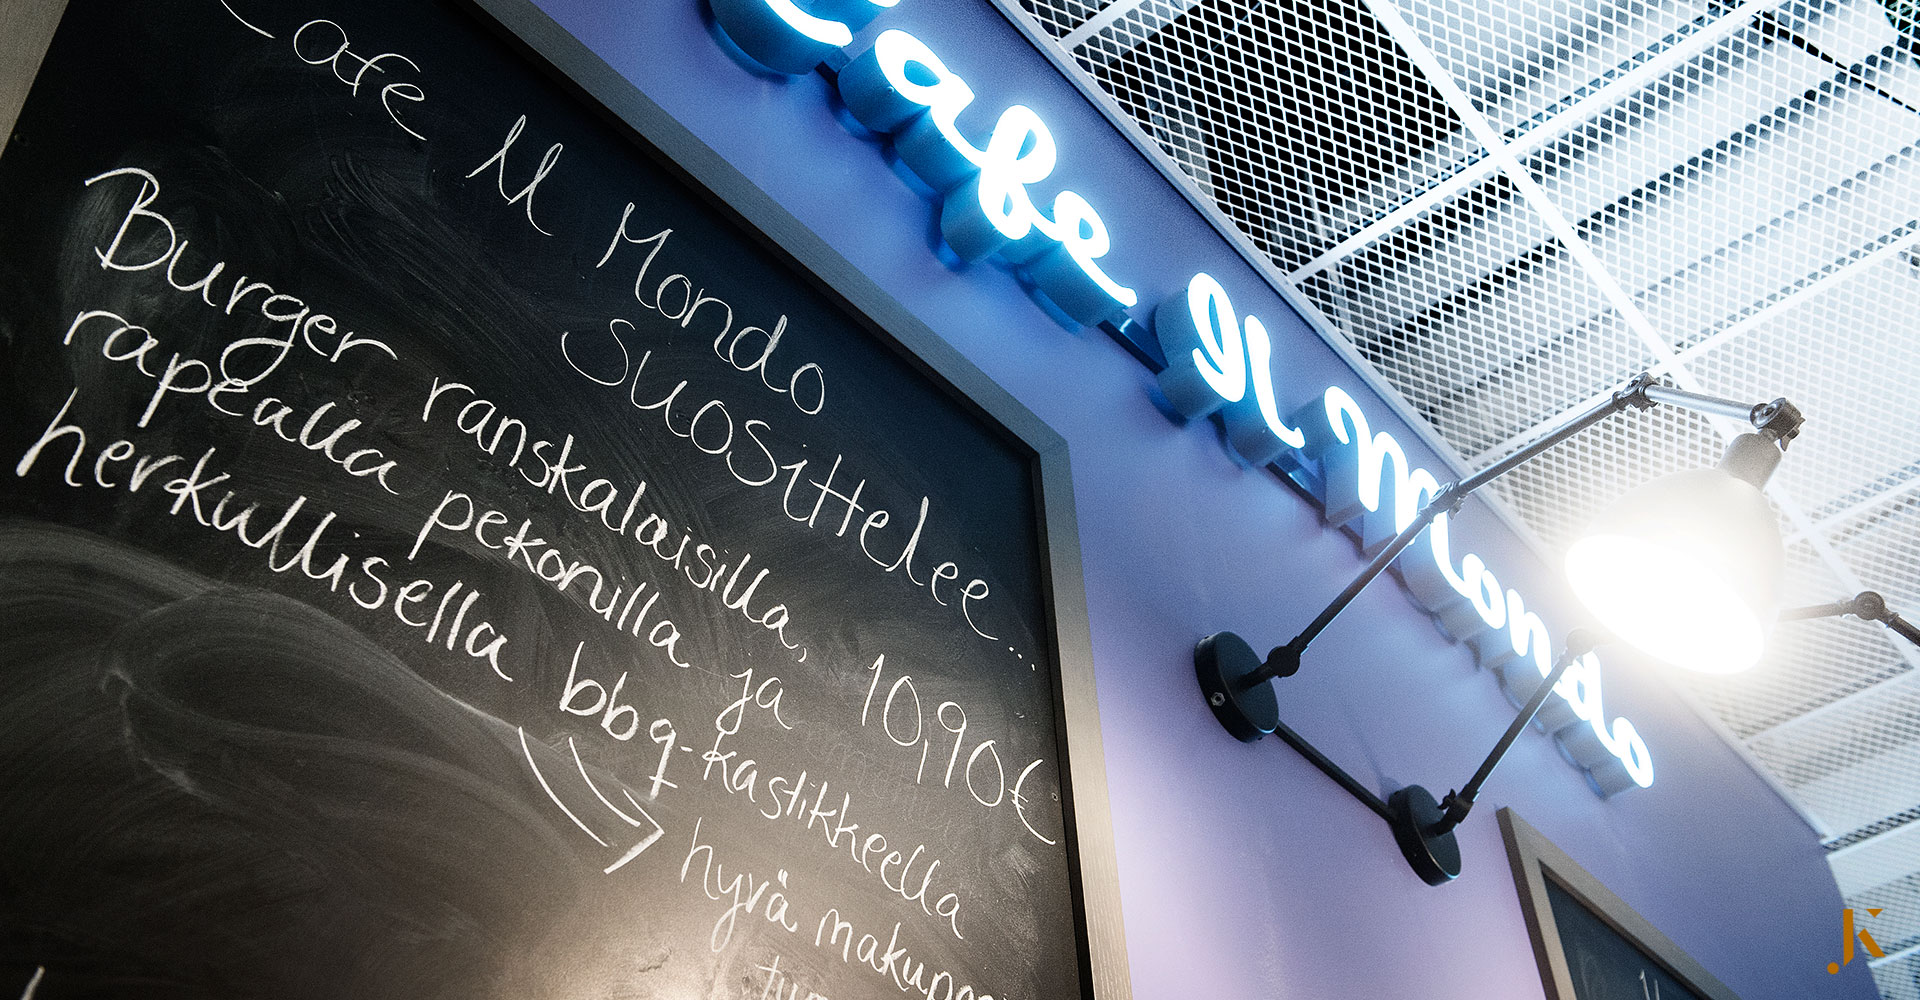 Cafe Il Mondo
suosittelee...
Burger ranskalaisilla, 10,90€
rapealla pekonilla ja
herkullisella bbq-kastikkeella
hyvä
Cafe Il Mondo
K